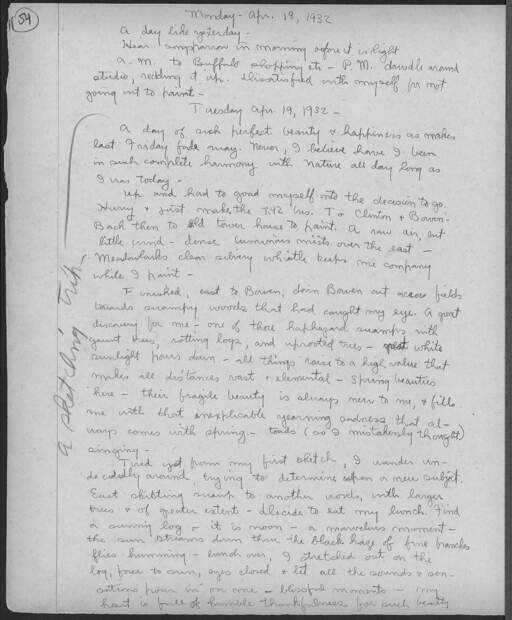 54
Monday - Apr. 18, 1932
A day like yesterday -
Hear songsparrow in morning before it is light
A.M. to Buffalo shopping etc - P.M. dawdle around
studio, redding it up. Dissatisfied with myself for not
going out to paint -
Tuesday Apr 19, 1932 -
A day of such perfect beauty & happiness as makes
last Friday fade away. Never, I believe have I been
in such complete harmony with Nature all day long as
I was today -
Up and had to goad myself into the decision to go.
Hurry & just make the 7,42 bus. To Clinton & Bowen.
Back then to old tower house to paint. A raw air, but
little wind - dense luminous mists over the east -
Meadowlarks clear silvery whistle keeps me company
while I paint -
Finished, east to Bowen, down Bowen out across fields
towards swampy woods that had caught my eye. A great
discovery for me - one of those haphazard swamps with
gaunt trees, rotting logs, and uprooted trees - white
sunlight pours down - all things raise to a high value that
makes all distances vast & elemental - Spring beauties
here - their fragile beauty is always new to me, & fills
me with that inexplicable yearning sadness that al-
ways comes with spring - toads (as I mistakenly thought)
singing -
Tired yet from my first sketch, I wander un-
decidedly around, trying to determine upon a new subject.
East skirting swamp to another woods, with larger
trees & of greater extent - decide to eat my lunch. Find
a sunny log - it is noon - a marvelous moment -
the sun streams down thru the black haze of fine branches
flies humming - lunch over, I stretched out on the
log, face to sun, eyes closed & let all the sounds & sen-
sations pour in on me - blissful moments - my
heart is full of humble thankfulness for such beauty
A sketching trip.